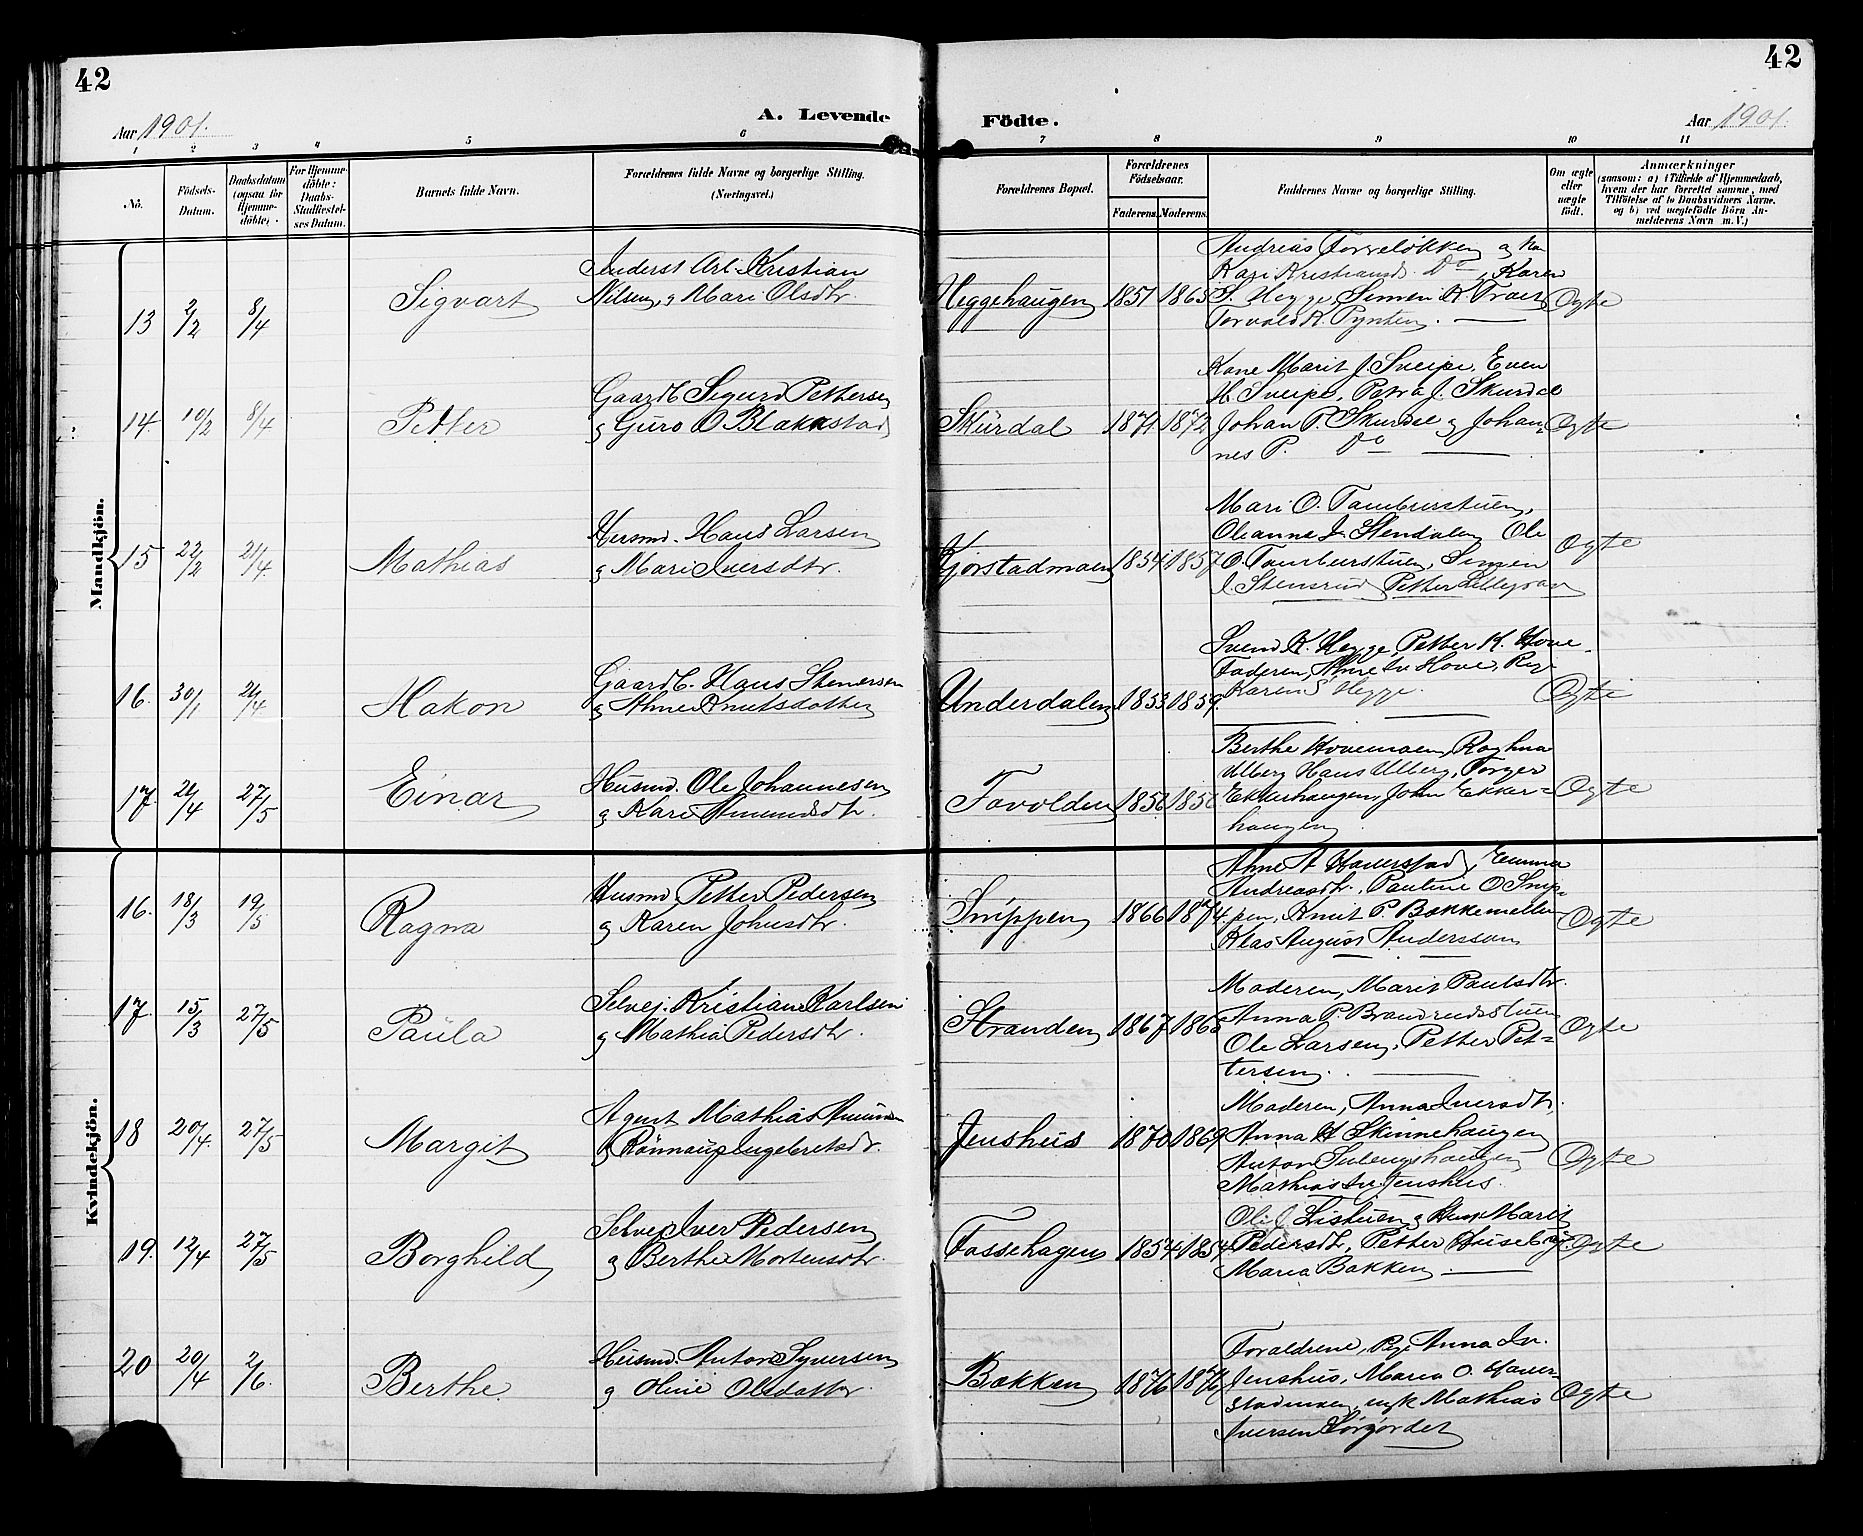 42
42
Aar 1901.
A. Levende
Födte.
Aar 1901.
1 2 3 4 5 6 7 8 9 10 11
No.
Födsels-Datum.
Daabsdatum (ogsaa for Hjemme-döbte).
For Hjemme-döbte: Daabs-Stadfæstel-ses Datum.
Barnets fulde Navn.
Forældrenes fulde Navne og borgerlige Stilling.
(Næringsvei.)
Forældrenes Bopæl.
Forældrenes Födselsaar.
Faderens.
Moderens.
Faddernes Navne og borgerlige Stilling.
Om ægte eller uægte födt.
Anmærkninger
(saasom: a) i Tilfælde af Hjemmedaab,
hvem der har forrettet samme, med
Tilföielse af to Daabsvidners Navne.
og b) ved uægtefödte Börn An-
melderens Navn m. V.)
Mandkjön.
13 2/2 8/4 Sigvart
Inderst Arb. Kristian
Nilsen, og Mari Olsdtr.
Heggehaugen 1851 1865
Andreas Torveløkken og
Kari Kristiansd. Do, Karen
S. Hegge, Simen K.
Torvald K. Pynten.
Ægte
14. 10/2 8/4 Petter
Gaardb. Sigurd Pettersen
og Guro O Blakkstad
Skurdal 1871 1872
Kone Marit J. Sveipe, Even
H. Sveipe, Petra J. Skurdal
Johan P. Skurdal og Johan-
nes P. Do
Ægte
15 22/2 21/4 Mathias
Husmd. Hans Larsen
og Mari Iversdtr.
Kjorstadmoen 1854 1857
Mari O. Tamburstuen,
Oleanne J. Stendalen Ole
O. Tamburstuen, Simen
J. Stensrud Petter
Ægte
16. 30/1 21/4 Hakon
Gaardb. Hans Stenersen
og Anne Knutsdatter
Underdalen 1853 1859.
Svend K. Hegge, Petter K. Hove
Faderen, Anne Hove, Pige
Karen S Hegge.
Ægte
17. 21/4 27/5 Einar
Husmd. Ole Johannesen
og Kari Amundsdtr.
Tovolden
Berthe Hovemoen, Raghna
Ulberg Hans Ulberg, Torger
Ekkerhaugen, John Ekker=
haugen
Ægte
Kvindekjön.
16. 18/3 19/5 Ragna
Husmd Petter Pedersen
og Karen Johnsdtr.
Snippen 1866 1874.
Anne A Haverstad, Emma
Andreasdtr., Pauline O Snip-
pen, Knut P. Bækkemellem
Klas August Andersson
Ægte
17. 15/3 27/5 Paula
Selvej. Kristian Karlsen
og Mathia Pedersdtr.
Stranden 1867
Moderen, Marit Paulsdtr.
Anna P. Brandrudsstuen
Ole Larsen, Petter Pet=
tersen.
Ægte
18 20/4. 27/5 Margit
Agent Mathias
og Rønnaug Ingebretsdtr.
Jenshus 1870 1869
Moderen, Anna Iversdtr.
Anna H Skinnehaugen
Anton
Mathias Jenshus.
Ægte
19. 12/4 27/5 Borghild
Selvej Iver Pedersen
og Berthe Mortensdtr.
Fossehagen 1854 1854
Ole J. Listuen, og Marit
Pedersdtr, Petter
Maria Bakken
Ægte
20 20/4 2/6. Berthe
Husmd. Anton Syversen
og Oline Olsdatter.
Bækken 1876 1876
Foraldrene, Pige Anna
Jenshus, Maria O. Haver-
stadmoen, ungk Mathias
Iversen Sørjordet
Ægte